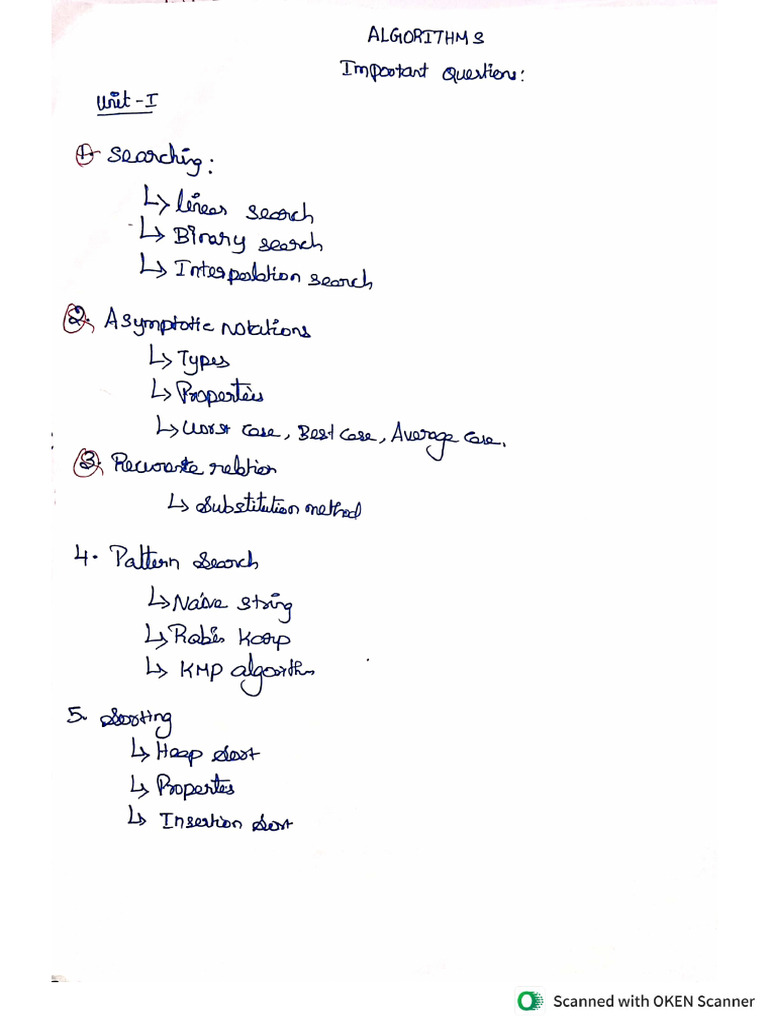 ALGORITHMS
Important Questions:
Unit - I
1. Searching:
↳ linear search
↳ Binary search
↳ Interpolation search
2. Asymptotic notations
↳ Types
↳ Properties
↳ Worst case, Best case, Average case.
3. Recurrente relation
↳ Substitution method
4. Pattern Search
↳ Naive string
↳ Rabin Karp
↳ KMP algorithm
5. Sorting
↳ Heap Sort
↳ Properties
↳ Insertion Sort
Scanned with OKEN Scanner